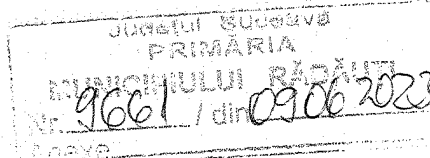 Judeţul Suceava
PRIMĂRIA
MUNICIPIULUI RĂDĂUŢI
Nr. 9661 / din 09 06 2023
Anexe